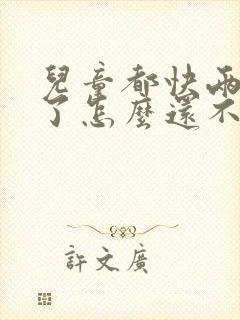 兒童都快兩
了怎麼還不
許文廣